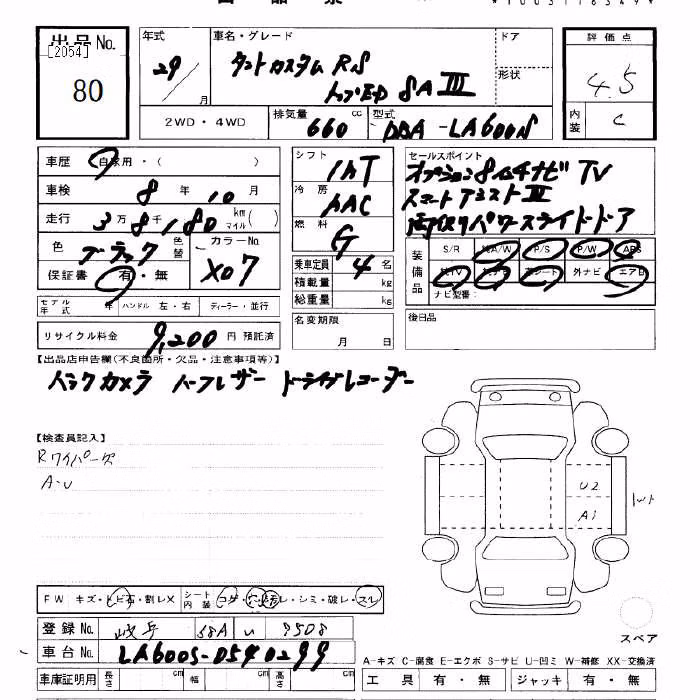 出品No.
[2054]
80
年式
29
月
車名・グレード
タントカスタム RS
トップED SA III
ドア
形状
評価点
4.5
内装
C
2WD・4WD
排気量
660 cc
型式
DBA-LA600S
車歴
自家用・( )
車検
8 年 10 月
走行
3万8千180 km マイル( )
色
ブラック
色替
カラーNo
X07
保証書
有・無
モデル年式
年
ハンドル 左・右
ディーラー・並行
リサイクル料金
9,200 円 預託済
シフト
IAT
冷房
AAC
燃料
G
乗車定員 4 名
積載量 kg
総重量 kg
名変期限
月 日
セールスポイント
オプション8インチナビ TV
スマートアシストIII
両側パワースライドドア
装備品
S/R A/W P/S P/W ABS
TV ナビ 革シート 外ナビ エアB
ナビ型番:
後日品
【出品店申告欄(不良箇所・欠品・注意事項等)】
バックカメラ ハーフレザー ドライブレコーダー
【検査員記入】
Rワイパーキズ
A・U
U2
A1
スペア
FW キズ・トビ石・割レX
シート内装
コゲ・穴・汚レ・シミ・破レ・スレ
登録No.
岐阜 58A い 9508
車台No.
LA600S-0540299
車庫証明用
長さ cm 幅 cm 高さ cm
A-キズ C-腐食 E-エクボ S-サビ U-凹ミ W-補修 XX-交換済
工具 有・無 ジャッキ 有・無